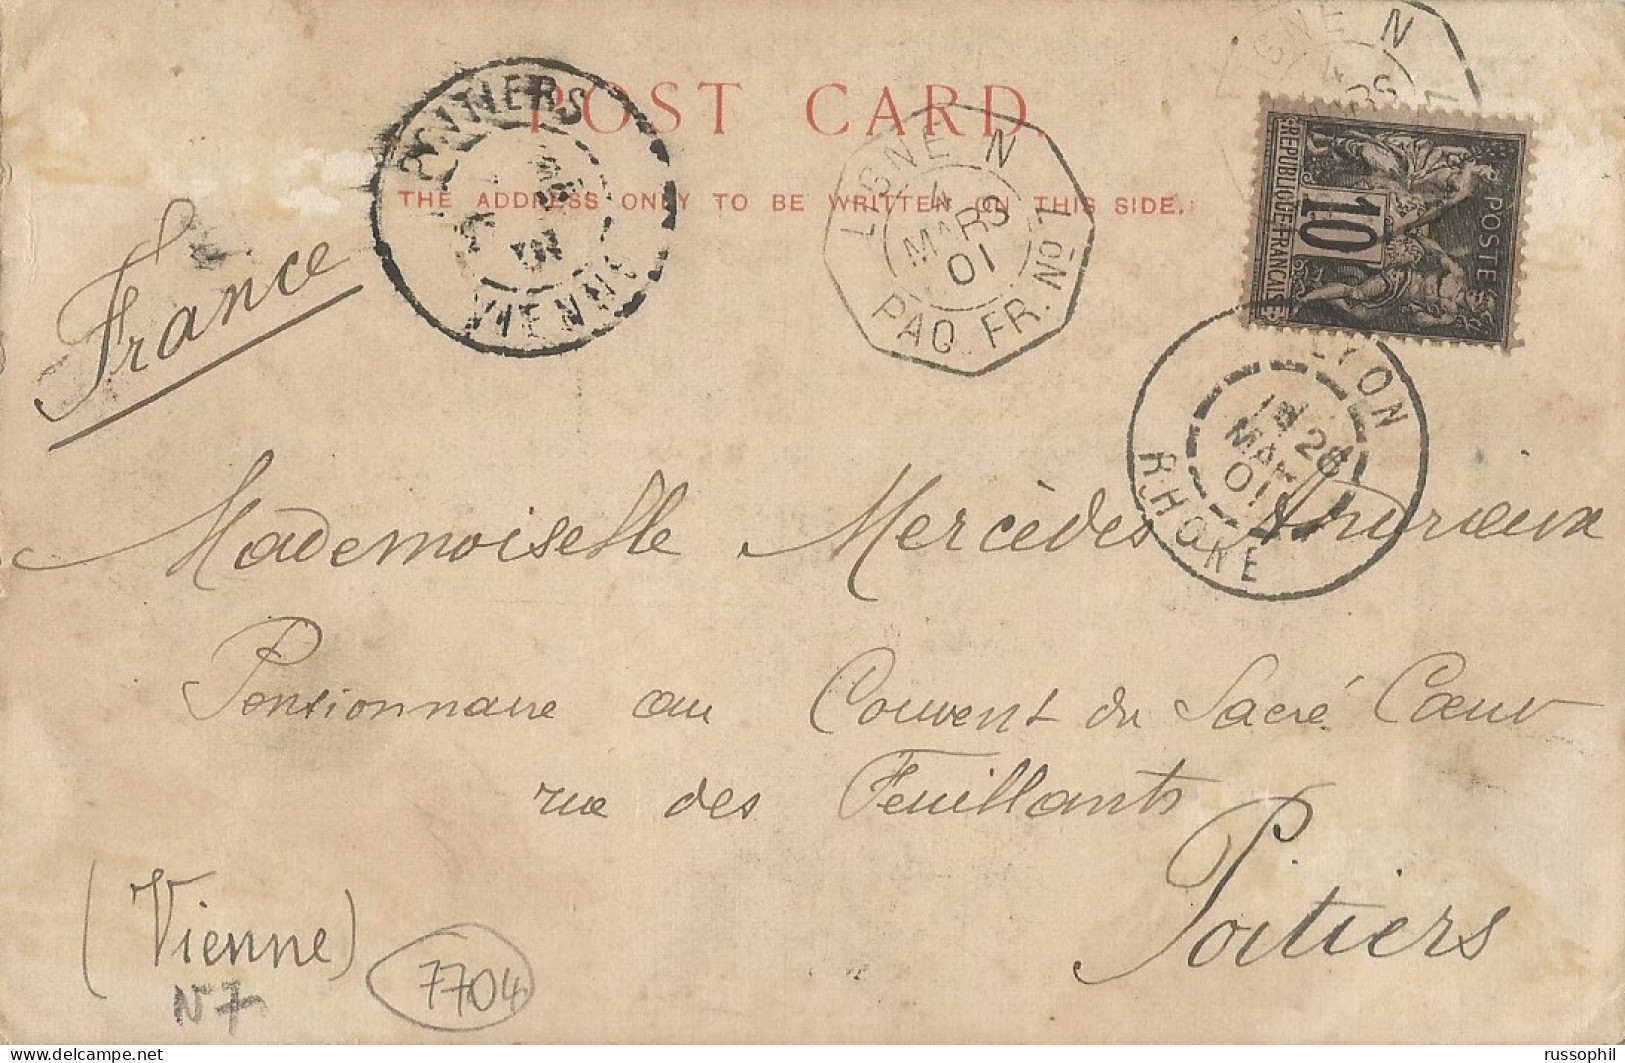 POST CARD
THE ADDRESS ONLY TO BE WRITTEN ON THIS SIDE.
POITIERS
VIENNE
LIGNE N
4
MARS
01
PAQ. FR. No 1
LIGNE N
4
MARS
REPUBLIQUE FRANCAISE
10
POSTE
LYON
28
MARS
01
RHONE
France
Mademoiselle Mercèdes
Pensionnaire au Couvent du Sacré Cœur
rue des Feuillants
Poitiers
(Vienne)
N 7
7704
russophil